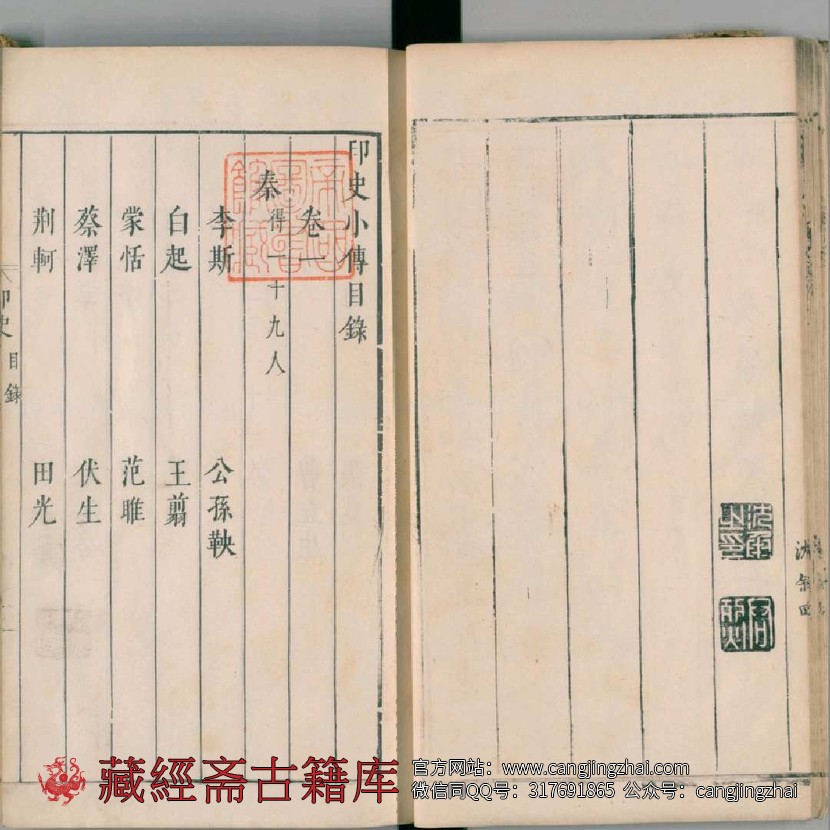 印史小傳目錄
卷一
秦得一十九人
李斯 公孫鞅
白起 王翦
蒙恬 范雎
蔡澤 伏生
荆軻 田光
印史 目錄
藏經斋古籍库
官方网站：www.cangjingzhai.com
微信同QQ号：317691865 公众号：cangjingzhai